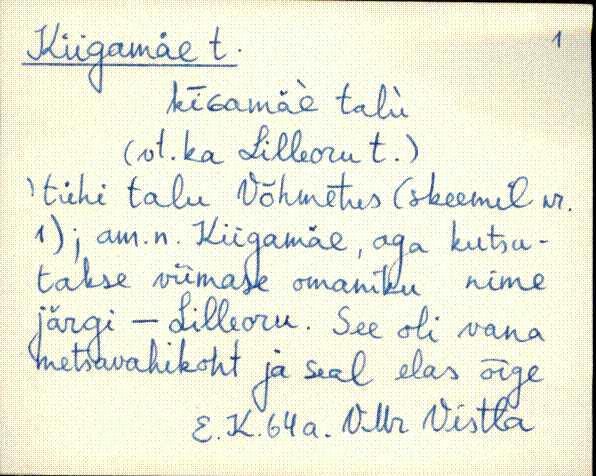 Kiigamäe t.
1
kīɢamäè talù
(vt. ka Lilleoru t.)
tühi talu Võhmetus (skeemil nr.
1); am.n. Kiigamäe, aga kutsu-
takse viimase omaniku nime
järgi – Lilleoru. See oli vana
metsavahikoht ja seal elas õige
E.K. 64 a. VMr Vistla